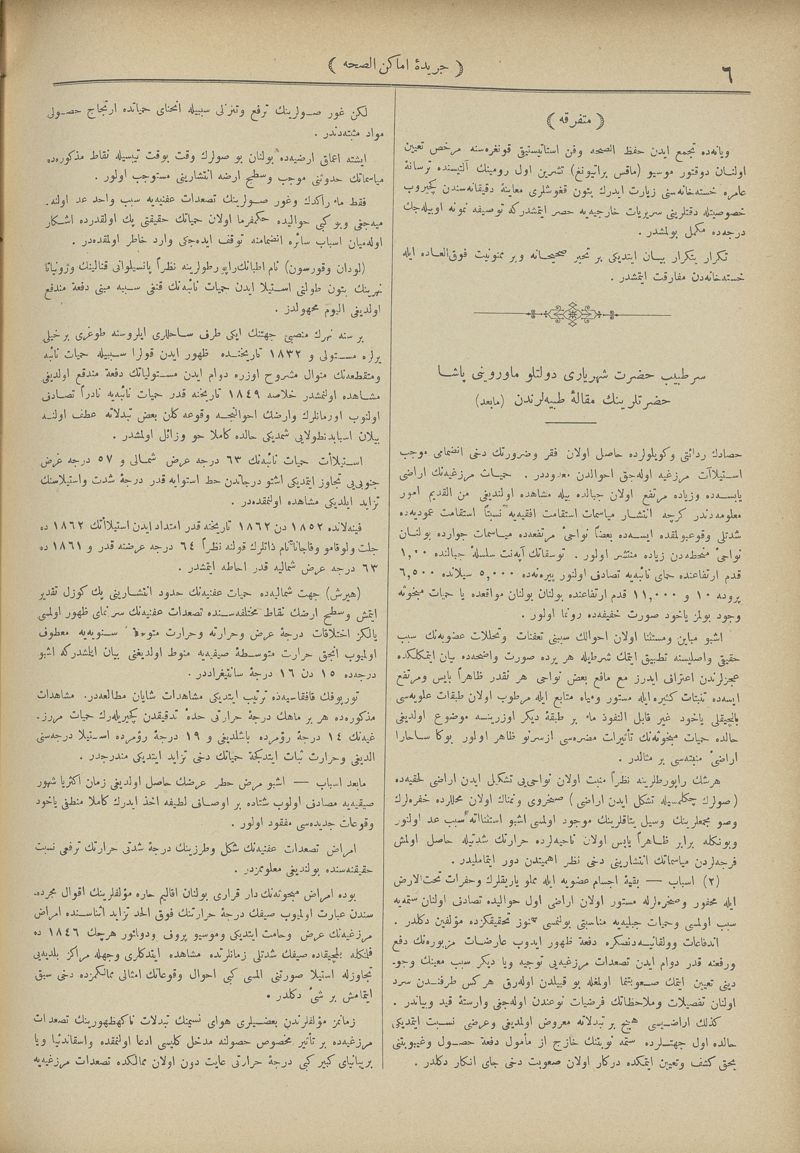 ٦
﴿ جريدۀ اماكن الصحه ﴾
﴿ متفرقه ﴾
ويانه‌ده تجمع ايدن حفظ الصحه وفن استاتيستيق قونغره‌سنه مرخص تعيين
اولنان دوقتور موسيو (ماقس براتيونغ) تشرين اول رومينك آلتيسنده ترسانۀ
عامره خسته‌خانه‌سنى زيارت ايدرك بتون قغوشلرى معاينۀ دقيقانه‌سندن كچيروب
خصوصيتله دقتلرينى سريريات خارجيه‌يه حصر ايتمشدركه توصيفه نمونه اوليه‌جق
درجه‌ده مكمل بولمشدر .
تكرار بتكرار بيان ايتديكى بر تحير صحيحانه و بر ممنونيت فوق العاده ايله
خسته‌خانه‌دن مفارقت ايتمشدر .
سرطبيب حضرت شهريارى دولتلو ماورويى پاشا
حضرتلرينك مقالۀ طبيه‌لرندن (مابعد)
حصادك ردائتى وكويلولرده حاصل اولان فقر وضرورتك دخى انضمامى موجب
استيلاآت مرزغيه اوله‌جق احوالدن معدوددر . حميات مرزغيه‌نك اراضى
يابسه‌ده وزياده مرتفع اولان جبالده بيله مشاهده اولنديغى من القديم امور
معلومه‌دندر كرچه انتشار مياسمات استقامت افقيه‌يه نسبتاً استقامت عموديه‌ده
شدتلى وقوعبولمقده ايسه‌ده بعضاً نواحئ مرتفعه‌ده مياسمات جوارده بولنان
نواحئ منحطه‌دن زياده منتشر اولور . توسقانك آپه‌نت سلسلۀ جبالنده ١,٢٠٠
قدم ارتفاعنده حماى نائبه‌يه تصادف اولنور پيره‌نه‌ده ٥,٠٠٠ سيلانده ٦,٥٠٠
پروده ١٠ و ١١,٠٠٠ قدم ارتفاعنده بولنان بولنان مواقعده يا حميات مبحوثه
وجود بولمز ياخود صورت خفيفه‌ده رونما اولور .
اشبو مباين ومستثنا اولان احوالك سببنى تعفنات وتحللات عضويه‌نك سبب
حقيقى واصليسنه تطبيق ايتمك شرطيله هر يرده صورت واضحه‌ده بيان ايتمكلكده
عجزلرندن اعترافى ايدرز مع مافيه بعض نواحى هر نقدر ظاهراً يابس ومرتفع
ايسه‌ده نباتات كثيره ايله مستور ومياه منابع ايله مرطوب اولان طبقات علويه‌سى
بالچيقلى ياخود غير قابل النفوذ ماء بر طبقۀ ديكر اوزرينه موضوع اولديغى
حالده حميات مبحوثه‌نك تأثيرات مضره‌سى ازسرنو ظاهر اولور بوكا ساحارا
اراضئ منبته‌سى بر مثالدر .
هرشك راپورطلرينه نظراً منبت اولان نواحى‌يى تشكيل ايدن اراضى لحقيه‌ده
(صولرك چكلمسيله تشكل ايدن اراضى) صخروى ونمناك اولان محللرده حفره‌لرك
وصو مجمعلرينك وسيل يتاقلرينك موجود اولمسى اشبو استثنااته سبب عد اولنور
وبونكله برابر ظاهراً يابس اولان ناحيه‌لرده حرارتك شدتيله حاصل اولمش
فرجه‌لردن مياسماتك انتشارينى دخى نظر اهميتدن دور ايتمامليدر .
(٢) اسباب — بقيۀ اجسام عضويه ايله مملو ياريقلرك وحفرات تحت الارض
ايله محفور وصخره‌لرله مستور اولان اراضى اول حواليده تصادف اولنان ستميه‌يه
سبب اولمسى وحميات جبليه‌يه مناسبتى بولنمسى هنوز تحقيقكرده مؤلفين دكلدر .
اندفاعات وولقانيه‌دنصكره دفعة ظهور ايدوب عارضات مزبوره‌نك دفع
ورفعنه قدر دوام ايدن تصعدات مرزغيه‌يى توجيه ويا ديكر سبب معينك وجو-
دينى تعيين ايتمك صعوبتنما اولمغله بو قبيلدن اوله‌رق هركس طرفندن سرد
اولنان تفصيلات وملاحظاتك فرضيات نوعندن اوله‌جغى وارستۀ قيد وبياندر .
كذلك اراضيسى هيچ بر تبدلاته معروض اولمديغى وعرضى نسبت ايتمديكى
حالده اول جهتلرده ستمه نوبتنك خارج از مأمول دفعة حصول وغيبوبتنى
بحق كشف وتعيين ايتمكده دركار اولان صعوبت دخى جاى انكار دكلدر .
لكن غور صولرينك ترفع وتنزلى سببيله انحناى حمياتده ارتجاج حصولى
مواد مثبته‌دندر .
ايشته اعماق ارضيه‌ده بولنان بو صولرك وقت بوقت تيبسيله نقاط مذكوره‌ده
مياسماتك حدوثنى موجب وسطح ارضه انتشارينى مستوجب اولور .
فقط ماء راكدك وغور صولرينك تصعدات عفنيه‌يه سبب واحد عد اولنه-
ميه‌جغى وبو كبى حواليده حكمفرما اولان حمياتك حقيقتى پك اولقدرده اشكار
اوله‌ميان اسباب سائره انضمامنه توقف ايده‌جكى وارد خاطر اولمقده‌در .
(لودان وقورسون) نام اطبانك راپورطولرينه نظراً پانسيلوانى قنالينك وژونياتا
نهرينك بتون طولنى استيلا ايدن حميات نائبه‌نك قنغى سببه مبنى دفعة مندفع
اولديغى اليوم مجهولدر .
بر سنه نهرك منصبى جهتنك ايكى طرف ساحللرى ايلروسنه طوغرى بر خيلى
يرلره مستولى و ١٨٣٢ تاريخنده ظهور ايدن قولرا سببيله حميات نائبه
ومتقطعه‌نك منوال مشروح اوزره دوام ايدن مستولياتك دفعة مندفع اولديغى
مشاهده اولنمشدر خلاصه ١٨٤٩ تاريخنه قدر حميات نائبه‌يه نادراً تصادف
اولنوب اورمانلرك وارضك احوالنجه وقوعه كلن بعض تبدلاته عطف اولنه
بيلان اسبابدنطولايى شمديكى حالده كاملا محو وزائل اولمشدر .
استيلاآت حميات نائبه‌نك ٦٣ درجه عرض شمالى و ٥٧ درجه عرض
جنوبى‌يى تجاوز ايتمديكى اشبو درجاتدن حط استوايه قدر درجۀ شدت واستيلاسنك
تزايد ايلديكى مشاهده اولنمقده‌در .
فينه‌لانده ١٨٥٢ دن ١٨٦٢ تاريخنه قدر امتداد ايدن استيلاآتك ١٨٦٢ ده
جلت ولوقامو وقاجانا نام ذاتلرك قولنه نظراً ٦٤ درجه عرضنه قدر و ١٨٦١ ده
٦٣ درجه عرض شماليه قدر احاطه ايتمشدر .
(هيرش) جهت شماليه‌ده حميات عفنيه‌نك حدود انتشارينى پك كوزل تقدير
ايتمش وسطح ارضك نقاط مختلفه‌سنده تصعدات عفنيه‌نك سرنماى ظهور اولمسى
يالكز اختلافات درجۀ عرض وحرارته وحرارت متوسطۀ سنويه‌يه معطوف
اولميوب انجق حرارت متوسطۀ صيفيه‌يه منوط اولديغنى بيان ايلمشدركه اشبو
درجه‌ده ١٥ دن ١٦ درجه سانتيغراددر .
توريوفك قافقاسيه‌ده ترتيب ايتديكى مشاهدات شايان مطالعه‌در. مشاهدات
مذكوره‌ده هر بر ماهك درجۀ حرارتى حدۀ تدقيقدن كچيريله‌رك حميات مرز-
غيه‌نك ١٤ درجه رؤمرده باشلديغى و ١٩ درجۀ رؤمرده استيلا درجه‌سنى
الديغى وحرارت ثبات ايتدكجه حمياتك دخى تزايد ايتديكى مندرجدر .
مابعد اسباب — اشبو مرض حطر عرضك حاصل اولديغى زمان اكثريا شهور
صيفيه‌يه مصادف اولوب شتاده بر اوصافى لطيفه اخذ ايدرك كاملا منطفى ياخود
وقوعات جديده‌سى مفقود اولور .
امراض تصعدات عفنيه‌نك شكل وطرزينك درجۀ شدتى حرارتك ترفعى نسبت
حقيقته‌سنده بولنديغى معلومزدر .
بوده امراض مبحوثه‌نك دار قرارى بولنان اقاليم حاره مؤلفلرينك اقوال مجرده-
سندن عبارت اولميوب صيفك درجۀ حرارتنك فوق الحد تزايد اثناسنده امراض
مرزغيه‌نك عرض وحامت ايتديكى وموسيو پروف ودوقتور هرچك ١٨٤٦ ده
فلنكله بلچيقاده صيفك شدتلى زمانلرنده مشاهده ايتدكلرى وجهله مراكز بلديه‌يى
تجاوزله استيلا صورتنى المسى كبى احوال وقوعاتك امثالى ممالكمزده دخى سبق
ايتمامش بر شئ دكلدر .
زمانمز مؤلفلرندن بعضيلرى هواى نسيمنك تبدلات ناكهظهورينك تصعدات
مرزغيه‌ده بر تأثير مخصوص حصولنه مدخل كليسى ادعا اولنمقده واسقاندنيا ويا
بريتانياى كبير كبى درجۀ حرارتى غايت دون اولان ممالكده تصعدات مرزغيه‌يه